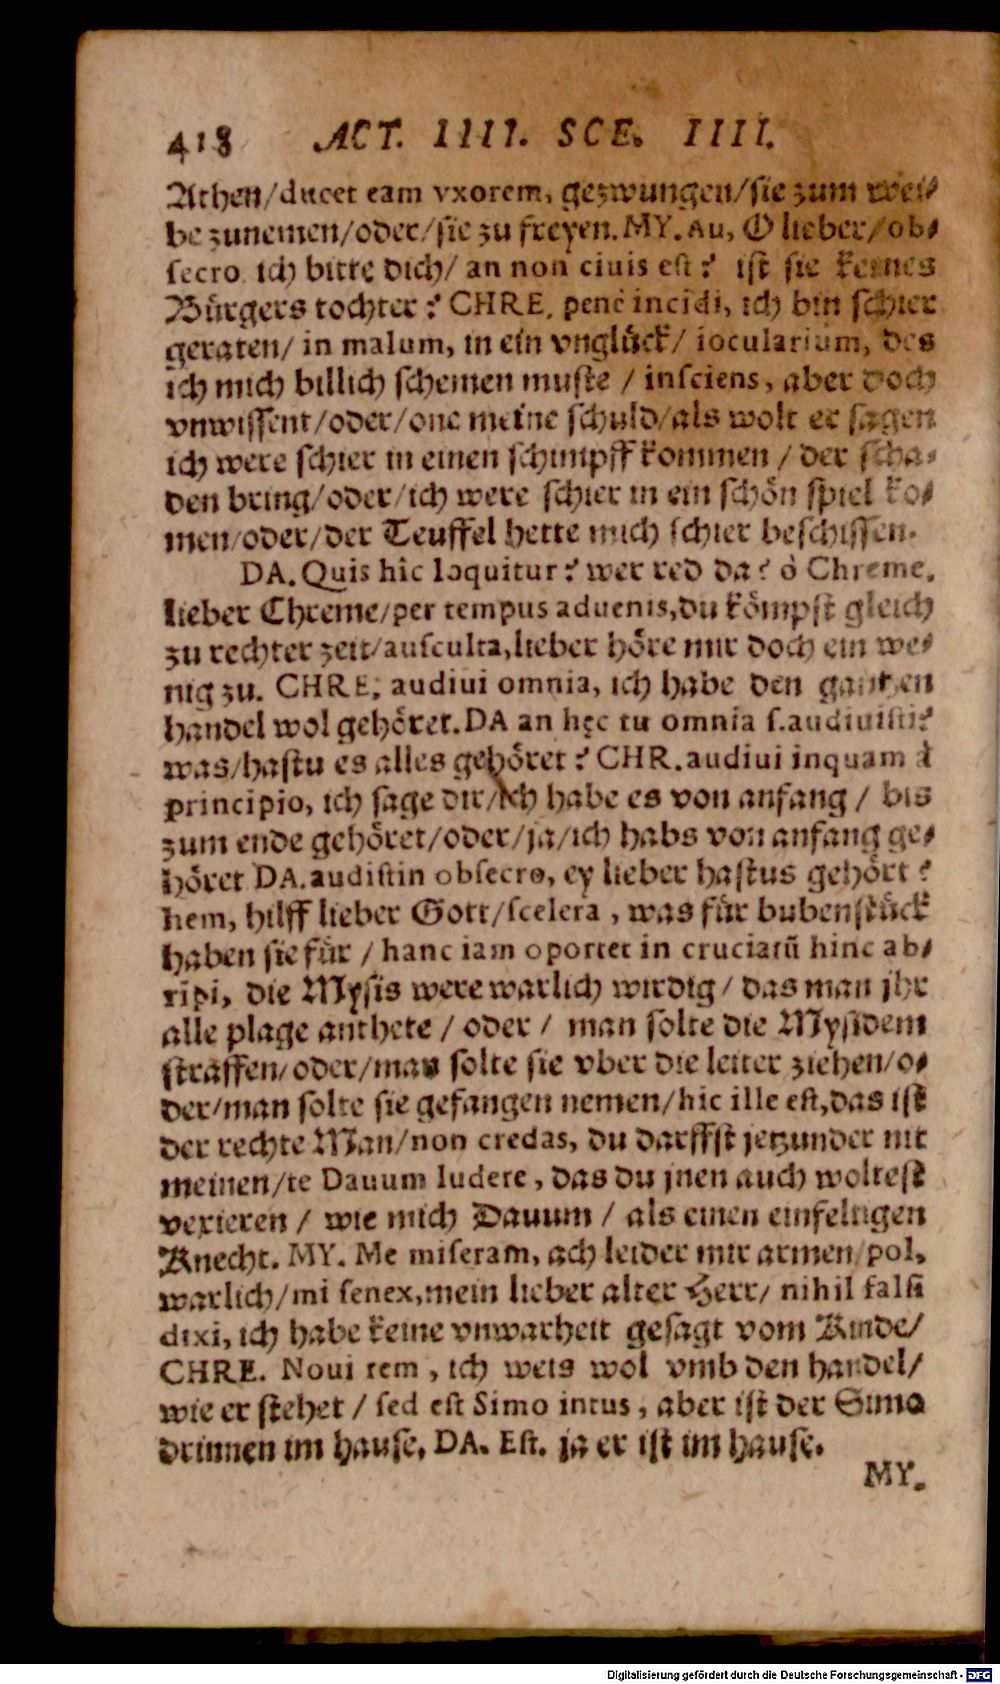 418 ACT. IIII. SCE. IIII.
Athen/ducet eam vxorem, gezwungen/sie zum wei⸗
be zunemen/oder/sie zu freyen. MY. Au, O lieber/ob⸗
secro ich bitte dich/ an non ciuis est? ist sie keines
Bürgers tochter? CHRE. penè incidi, ich bin schier
geraten/ in malum, in ein vnglück/ iocularium, des
ich mich billich schemen muste / insciens, aber doch
vnwissent/oder/one meine schuld/als wolt er sagen
ich were schier in einen schimpff kommen / der scha⸗
den bring/oder/ich were schier in ein schön spiel ko⸗
men/oder/der Teuffel hette mich schier beschissen.
DA. Quis hîc loquitur? wer red da? ò Chreme,
lieber Chreme/per tempus aduenis, du kömpst gleich
zu rechter zeit/ausculta, lieber höre mir doch ein we⸗
nig zu. CHRE. audiui omnia, ich habe den gantzen
handel wol gehöret. DA an hęc tu omnia s. audiuisti?
was/hastu es alles gehöret? CHR. audiui inquam à
principio, ich sage dir/ich habe es von anfang / bis
zum ende gehöret/oder/ja/ich habs von anfang ge⸗
höret DA. audistin obsecro, ey lieber hastus gehört?
hem, hilff lieber Gott/scelera, was für bubenstück
haben sie für / hanc iam oportet in cruciatū hinc ab⸗
ripi, die Mysis were warlich wirdig/ das man jhr
alle plage anthete / oder / man solte die Mysidem
straffen/oder/man solte sie vber die leiter ziehen/o⸗
der/man solte sie gefangen nemen/hic ille est, das ist
der rechte Man/non credas, du darffst jetzunder nit
meinen/te Dauum ludere, das du jnen auch woltest
vexieren / wie mich Dauum / als einen einfeltigen
Knecht. MY. Me miseram, ach leider mir armen/pol,
warlich/mi senex, mein lieber alter Herr/ nihil falsi
dixi, ich habe keine vnwarheit gesagt vom Kinde/
CHRE. Noui rem, ich weis wol vmb den handel/
wie er stehet / sed est Simo intus, aber ist der Simo
drinnen im hause, DA. Est. ja er ist im hause.
MY.
Digitalisierung gefördert durch die Deutsche Forschungsgemeinschaft - DFG